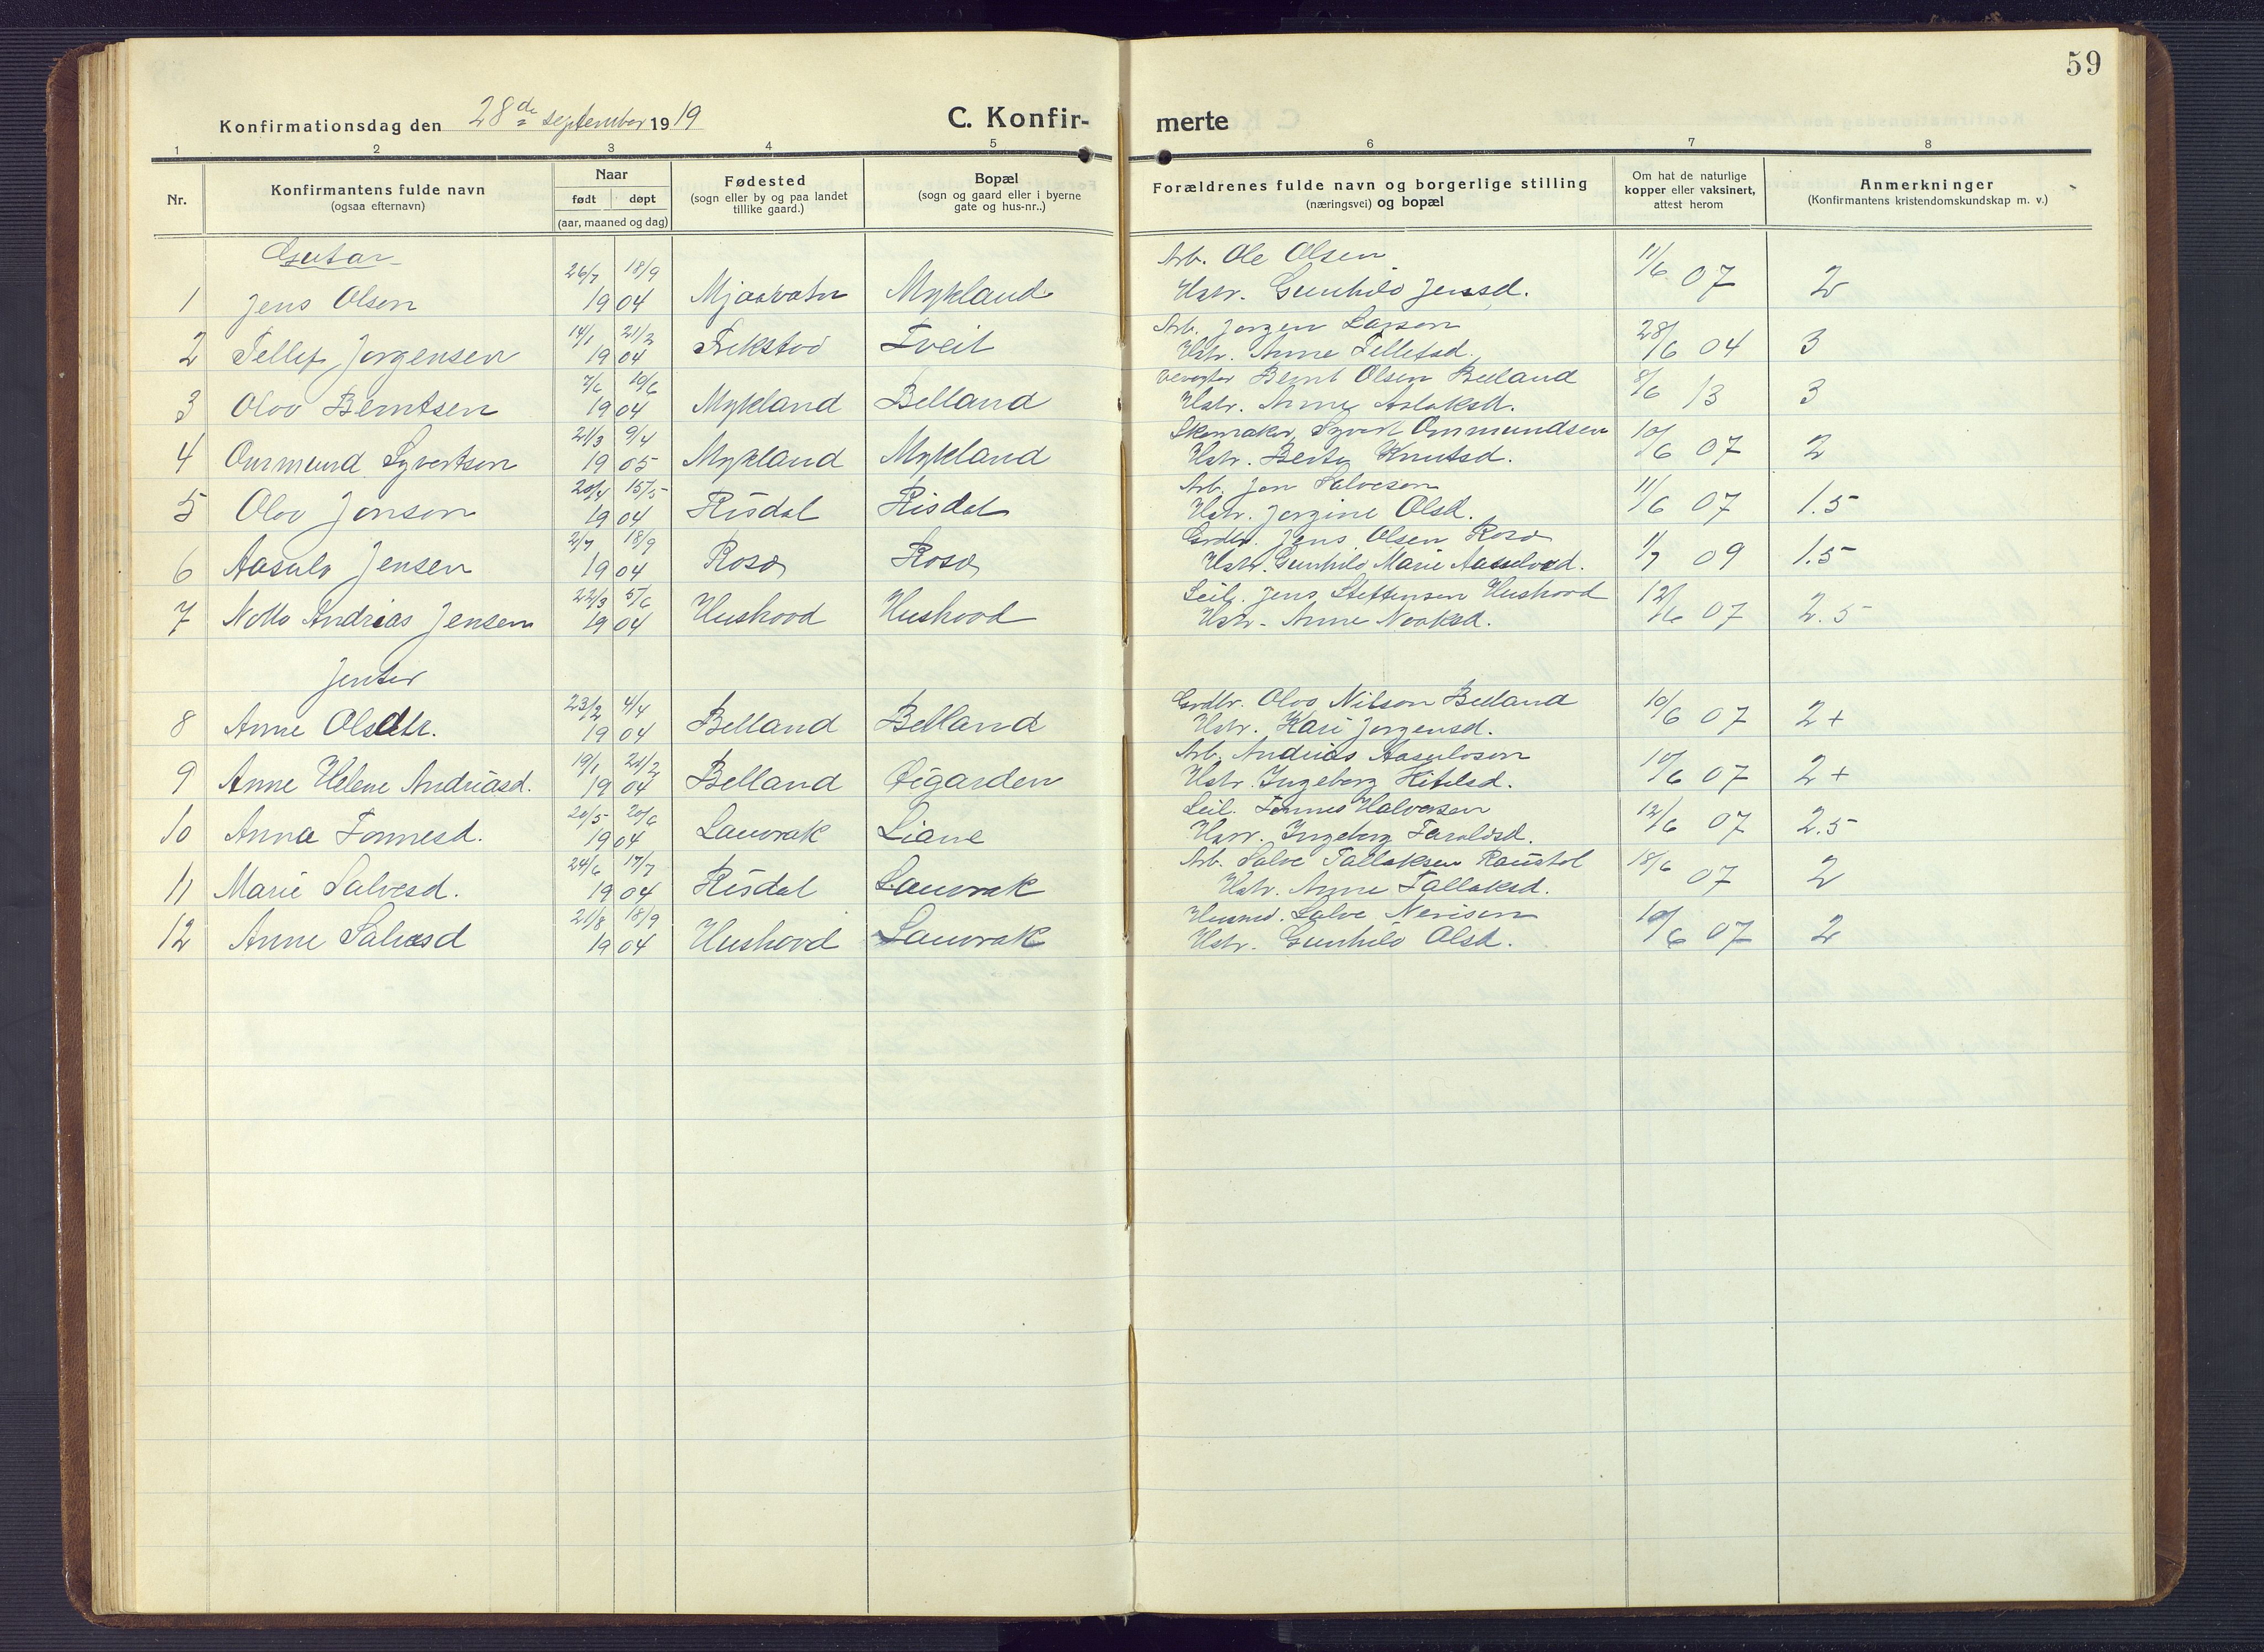 59
Konfirmationsdag den 28de september 1919
C. Konfir-
merte
1 2 3 4 5 6 7 8
Nr.
Konfirmantens fulde navn
(ogsaa efternavn)
Naar
født døpt
(aar, maaned og dag)
Fødested
(sogn eller by og paa landet
tillike gaard.)
Bopæl
(sogn og gaard eller i byerne
gate og hus-nr..)
Forældrenes fulde navn og borgerlige stilling
(næringsvei) og bopæl
Om hat de naturlige
kopper eller vaksinert,
attest herom
Anmerkninger
(Konfirmantens kristendomskundskap m. v.)
Gutar
26/7 18/9 Arb. Ole Olsen 11/6 07
1 Jens Olsen 19 04 Mjaavatn Mykland Hstr. Gunhild Jensd. 2
14/1 21/2 Arb. Jorgen Larsen 28/6 04
2 Tellef Jorgensen 19 04 Tveit Hstr. Anne Tellefsd. 3
7/6 19/6 Bernt Olsen Belland 8/6 13
3 Olav Berntsen 19 04 Mykland Belland Hstr. Anne Aslaksd. 3
21/3 9/4 Skomaker Syvert Ommundsen 10/6 07
4 Ommund Syvertsen 19 05 Mykland Mykland Hstr. Berte Knutsd. 2
20/4 15/5 Arb. Jon Salvesen 11/6 07
5 Olav Jonsen 19 04 Risdal Risdal Hstr. Jorgine Olsd. 1.5
2/7 18/9 Grdbr. Jens Olsen Roso 1/7 09
6 Aasulv Jensen 19 04 Roso Roso Hstr. Gunhild Marie Aasulvsd. 1.5
22/3 5/6 Leil. Jens Steffensen Hushovd 12/6 07
7 Andreas Jensen 19 04 Hushovd Hushovd Hstr. Anne 2.5
Jenter
23/2 4/4 Grdbr. Olav Nilson Belland 10/6 07
8 Anne Olsdtr. 19 04 Belland Belland Hstr. Kari Jorgensd. 2+
19/1 21/2 Arb. Andreas Aasulvsen 10/6 07
9 Anne Helene Andreasd. 19 04 Belland Øigarden Hstr. Ingeborg Kitelsd. 2+
20/5 20/6 Leil. Tonnes Halvorsen 12/6 07
10 Anna Tonnesd. 19 04 Lauvrak Liane Hstr. Ingeborg Taraldsd. 2.5
24/6 17/7 Arb. Salve Tallaksen Raustol 18/6 07
11 Marie Salvesd. 19 04 Risdal Lauvrak Hstr. Anne Tallaksd. 2
21/8 18/9 Husmd. Salve Nerisen 10/6 07
12 Anne Salvesd 19 04 Hushovd Lauvrak Hstr. Gunhild Olsd. 2